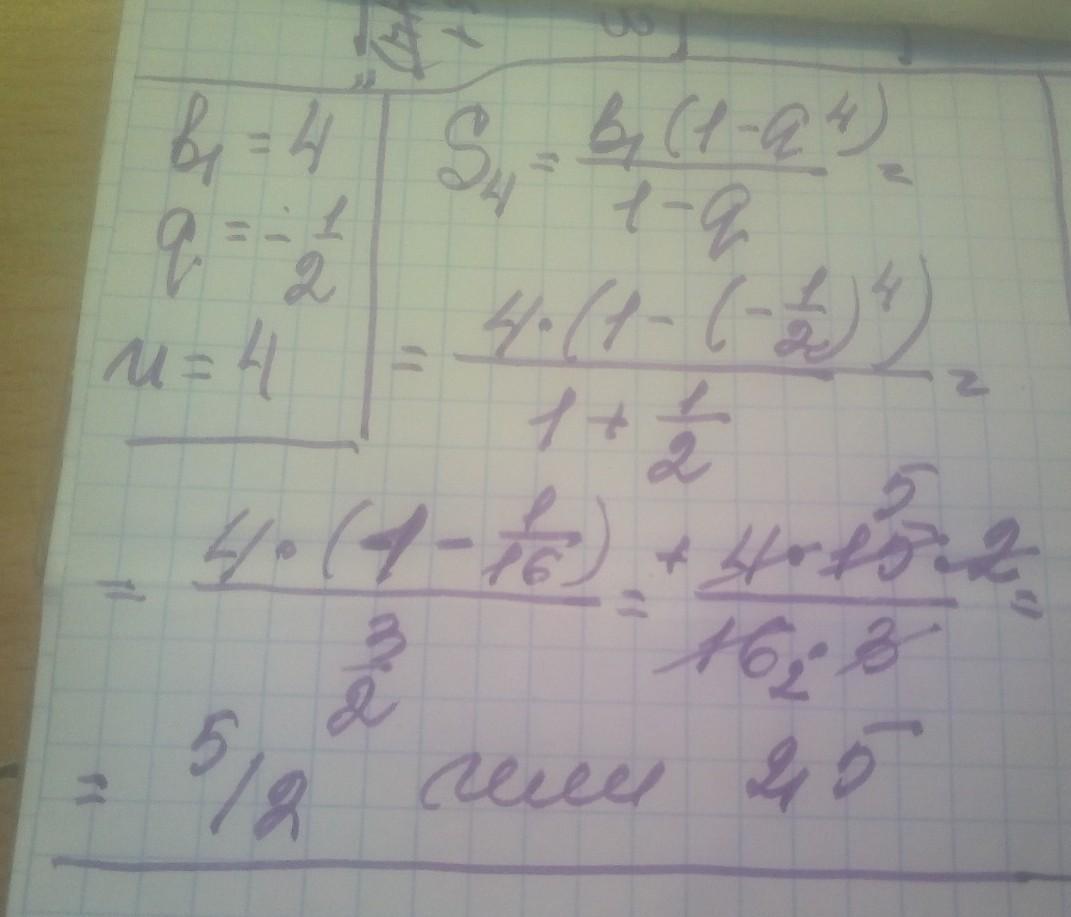 b₁ = 4
q = -1/2
n = 4
S₄ = b₁(1-q⁴)/1-q =
= 4·(1-(-1/2)⁴)/1+1/2 =
= 4·(1-1/16)/(3/2) = + 4·15·2/16·3 =
5
2
= 5/2 или 2,5